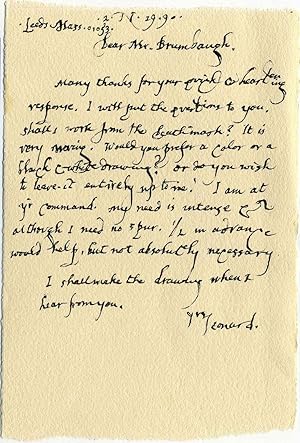 2. IV. 29. 90.
Leeds Mass. 01053.
Dear Mr. Brumbaugh.
Many thanks for your quick & heartening
response. I will put the questions to you
shall I work from the deathmask? It is
very moving. Would you prefer a color or a
black & white drawing? or do you wish
to leave it entirely up to me? I am at
yr command. my need is intense
although I need no spur. 1/2 in advance
would help, but not absolutely necessary
I shall make the drawing when I
hear from you.
yrs Leonard.